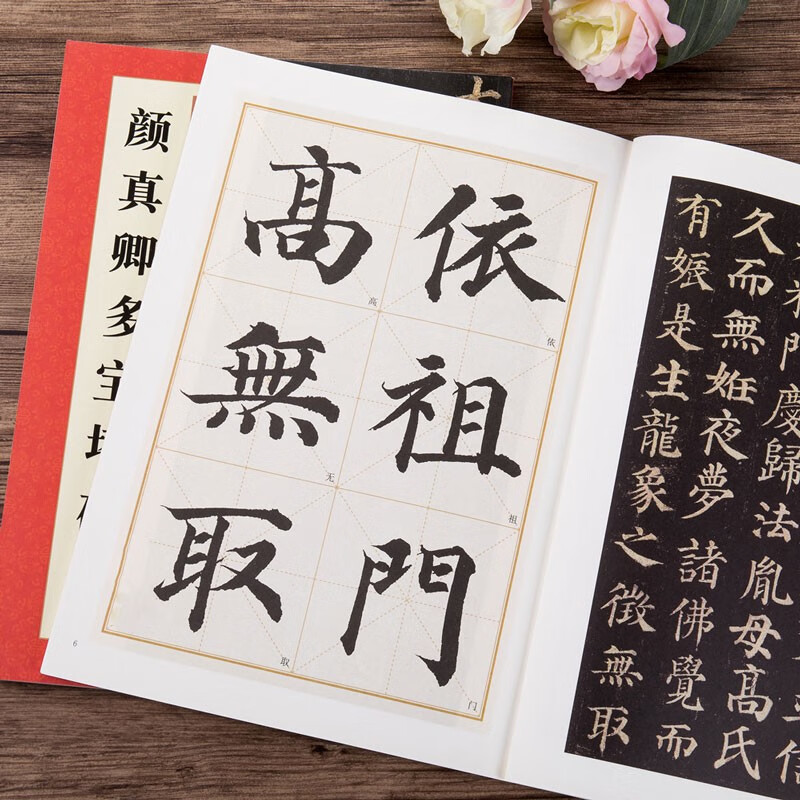 颜真卿多宝
依祖門
高無取
依
祖
门
高
无
取
6
門慶歸法胤母高氏
久而無姙夜夢諸佛覺而
有娠是生龍象之徵無取